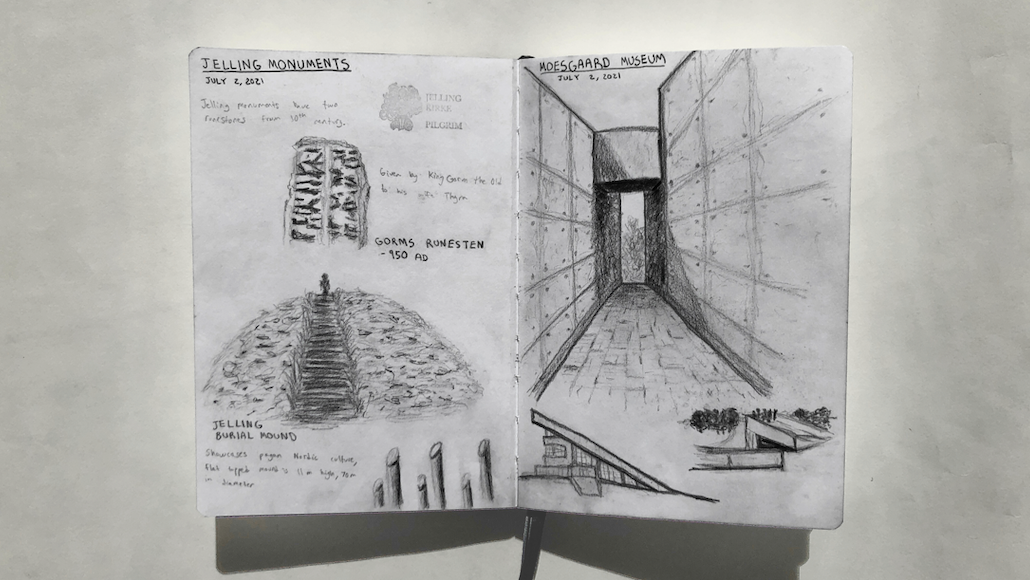 JELLING MONUMENTS
JULY 2, 2021
Jelling monuments have two
runestones from 10th century.
JELLING
KIRKE
PILGRIM
Given by King Gorm the Old
to his Thyra
GORMS RUNESTEN
~950 AD
JELLING
BURIAL MOUND
Showcases pagan Nordic culture,
flat topped mound is 11m high, 70m
in diameter
MOESGAARD MUSEUM
JULY 2, 2021